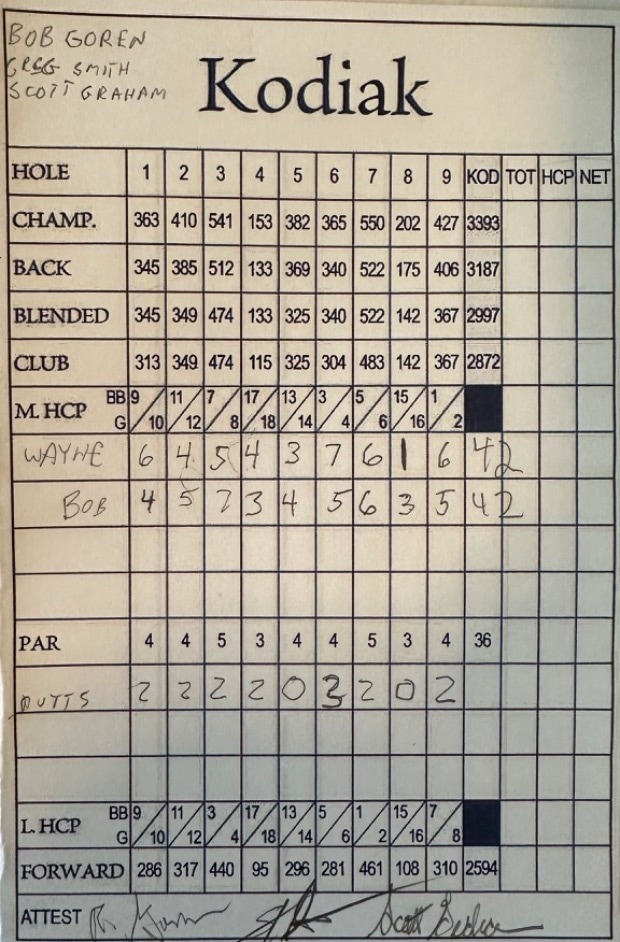 BOB GOREN
GREG SMITH
SCOTT GRAHAM
Kodiak
HOLE 1 2 3 4 5 6 7 8 9 KOD TOT HCP NET
CHAMP. 363 410 541 153 382 365 550 202 427 3393
BACK 345 385 512 133 369 340 522 175 406 3187
BLENDED 345 349 474 133 325 340 522 142 367 2997
CLUB 313 349 474 115 325 304 483 142 367 2872
M. HCP BB G 9/10 11/12 7/8 17/18 13/14 3/4 5/6 15/16 1/2
WAYNE 6 4 5 4 3 7 6 1 6 42
BOB 4 5 7 3 4 5 6 3 5 42
PAR 4 4 5 3 4 4 5 3 4 36
PUTTS 2 2 2 2 0 3 2 0 2
L. HCP BB G 9/10 11/12 3/4 17/18 13/14 5/6 1/2 15/16 7/8
FORWARD 286 317 440 95 296 281 461 108 310 2594
ATTEST Scott